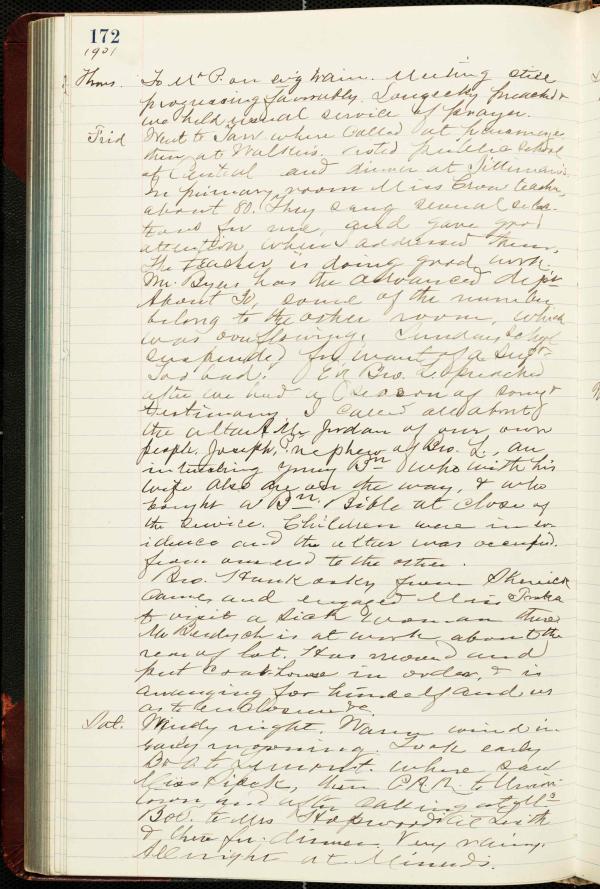 172
1901
Thurs. To Mt P. on ev'g train. Meeting still
progressing favorably. preached &
we held usual service of prayer.
Frid Went to Tarr where called at parsonage
then at Walkin's. Visited public school
at Central and dinner at
In primary room Miss teacher,
about 80. They sang several selec-
tions for me, and gave good
attention when I addressed them.
The teacher is doing good work.
Mr. Byers has the advanced dep't
About 70, some of the number
belong to the other room, which
was overflowing. Sunday School
suspended for want of a Sup't
Too bad. Ev Bro. L preached
after we had a season of song &
testimony. I called all about
the altar. Mr. Jordan of our own
people, Joseph, nephew of Bro. L, an
interesting young Bn who with his
wife also are on the way, & who
bought a Bn. Bible at close of
the service. Children were in ev-
idence and the altar was occupied
from one end to the other.
Bro. from
came and engaged Miss
to visit a sick woman there
Mr is at work about the
rear of lot. Has moved and
put coal house in order, & is
arranging for himself and us
as to enclosure &c.
Sat. Windy night. Warm wind in
early morning. Took early
to where saw
Miss then P.R.R. to Union-
town and after calling at
to Mrs Hopwood's at Leith
& there for dinner. Very rainy.
All night at